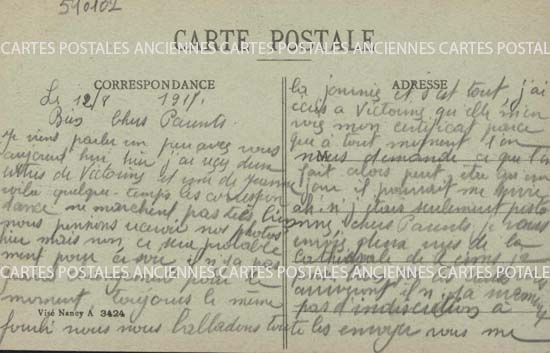 510102
CARTE POSTALE
CARTES POSTALES ANCIENNES CARTES POSTALES ANCIENNES CARTES POSTALES ANCIENNES
CORRESPONDANCE
Le 12/8 1917.
Bien Chers Parents
Je viens parler un peu avec vous
aujourd'hui, hier j'ai reçu deux
de Victorine et une de Jeanne
voilà quelque temps les correspon
dance ne marchent pas très bien
nous pensions recevoir nos photos
hier mais non, ce sera probable
ment pour ce soir il n'y a pas
pour le
moment toujours le même
fourbi nous nous balladons toute
Visé Nancy A 3424
ADRESSE
la journée et c'est tout, j'ai
écris à Victorine qu'elle m'en
voie mon certificat parce
que à tout moment l'on
nous demande ce que l'on
fait alors peut être que un
jour il pourrait me servir
ah si j'étais seulement
chers Parents je vous
envoie vues de la
Cathédrale de
arriveront il n'y a
pas d'indiscrétion à
les envoyer vous me